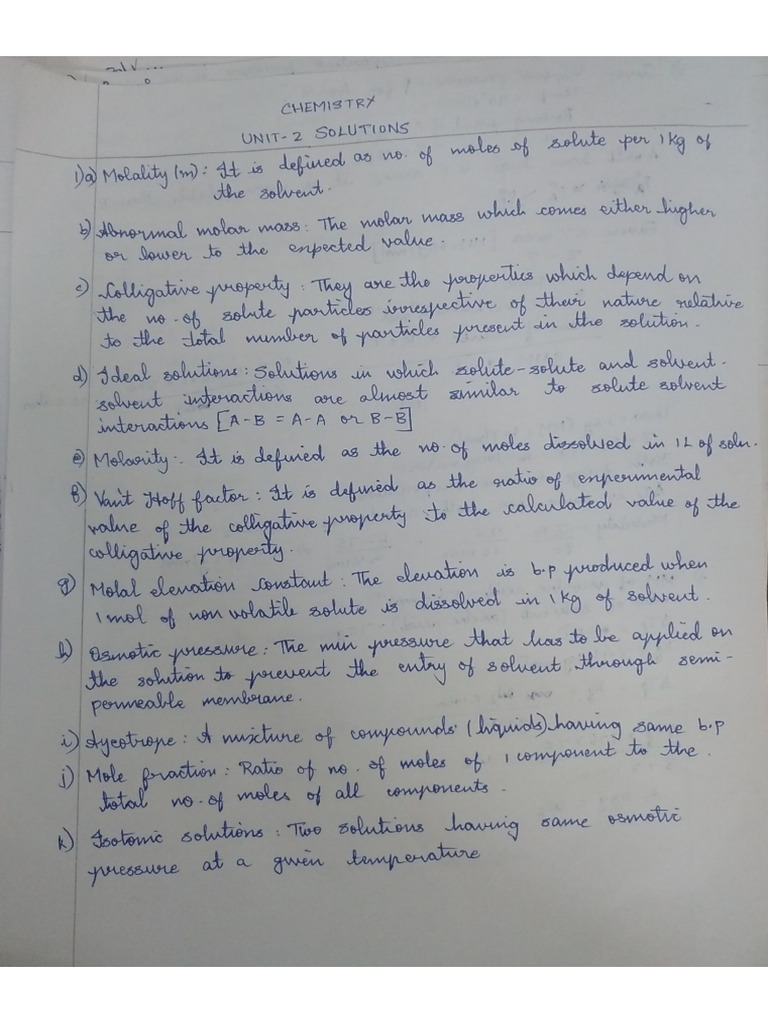 CHEMISTRY
UNIT-2 SOLUTIONS
1) a) Molality (m): It is defined as no. of moles of solute per 1 kg of
the solvent.
b) Abnormal molar mass: The molar mass which comes either higher
or lower to the expected value.
c) Colligative property: They are the properties which depend on
the no. of solute particles irrespective of their nature relative
to the total number of particles present in the solution.
d) Ideal solutions: Solutions in which solute-solute and solvent-
solvent interactions are almost similar to solute solvent
interactions [A-B = A-A or B-B]
e) Molarity:. It is defined as the no. of moles dissolved in 1L of soln.
f) Van't Hoff factor: It is defined as the ratio of experimental
value of the colligative property to the calculated value of the
colligative property.
g) Molal elevation constant: The elevation is b.p produced when
1 mol of non volatile solute is dissolved in 1 kg of solvent.
h) Osmotic pressure: The min pressure that has to be applied on
the solution to prevent the entry of solvent through semi-
permeable membrane.
i) Azeotrope: A mixture of compounds (liquids) having same b.p
j) Mole fraction: Ratio of no. of moles of 1 component to the
total no. of moles of all components.
k) Isotonic solutions: Two solutions having same osmotic
pressure at a given temperature